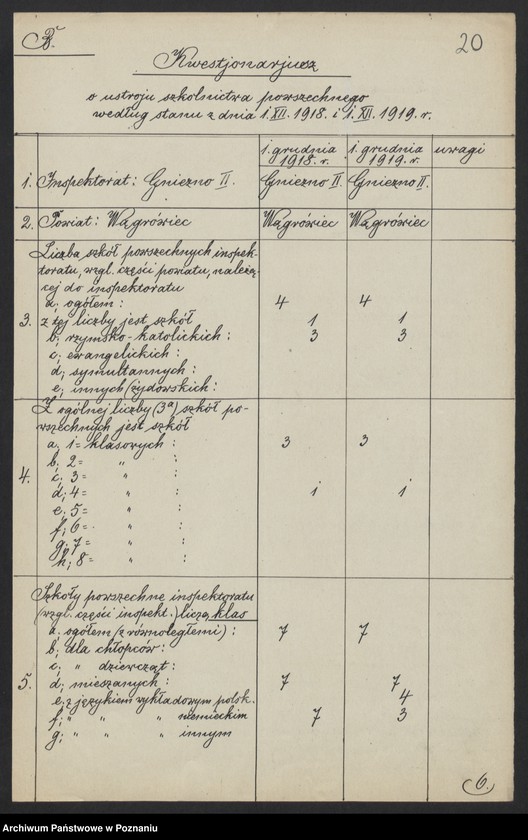 B.
20
Kwestjonarjusz
o ustroju szkolnictwa powszechnego
według stanu z dnia 1.XII.1918. i 1.XII.1919. r.
1. grudnia 1918. r. 1. grudnia 1919. r. uwagi
1. Inspektorat: Gniezno II. Gniezno II. Gniezno II.
2. Powiat: Wągrówiec Wągrówiec Wągrówiec
Liczba szkół powszechnych inspek-
toratu, wzgl. części powiatu, należą-
cej do inspektoratu
a; ogółem: 4 4
3. z tej liczby jest szkół 1 1
b; rzymsko-katolickich: 3 3
c; ewangelickich:
d; symultannych:
e; innych/żydowskich:
Z ogólnej liczby (3a) szkół po-
wszechnych jest szkół
a. 1=klasowych: 3 3
b; 2= " :
c; 3= " :
4. d; 4= " : 1 1
e; 5= " :
f; 6= " :
g; 7= " :
h; 8= " :
Szkoły powszechne inspektoratu
(wzgl. części inspekt.) liczą klas
a; ogółem (z równoległemi): 7 7
b; dla chłopców:
c; " dziewcząt:
5. d; mieszanych: 7 7
e; z językiem wykładowym polsk. 4
f; " " " niemieckim 7 3
g; " " " innym
6.
Archiwum Państwowe w Poznaniu